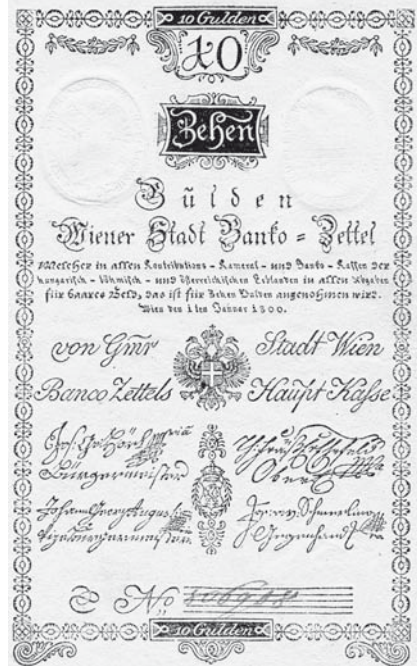 10 Gulden
10
Zehen
Gülden
Wiener Stadt Banko = Zettel
Welcher in allen Kontributions - Kameral - und Banko - Kassen der
hungarisch - böhmisch - und österreichischen Erblanden in allen Abgaben
für baares Geld, das ist für Zehen Gulden angenohmen wird.
Wien den 1ten Jänner 1800.
von Gmr Stadt Wien
Banco Zettels Haupt Kasse
Bürgermeister
Johann Georg Augusti
Vizebürgermeister
No 106908
10 Gulden